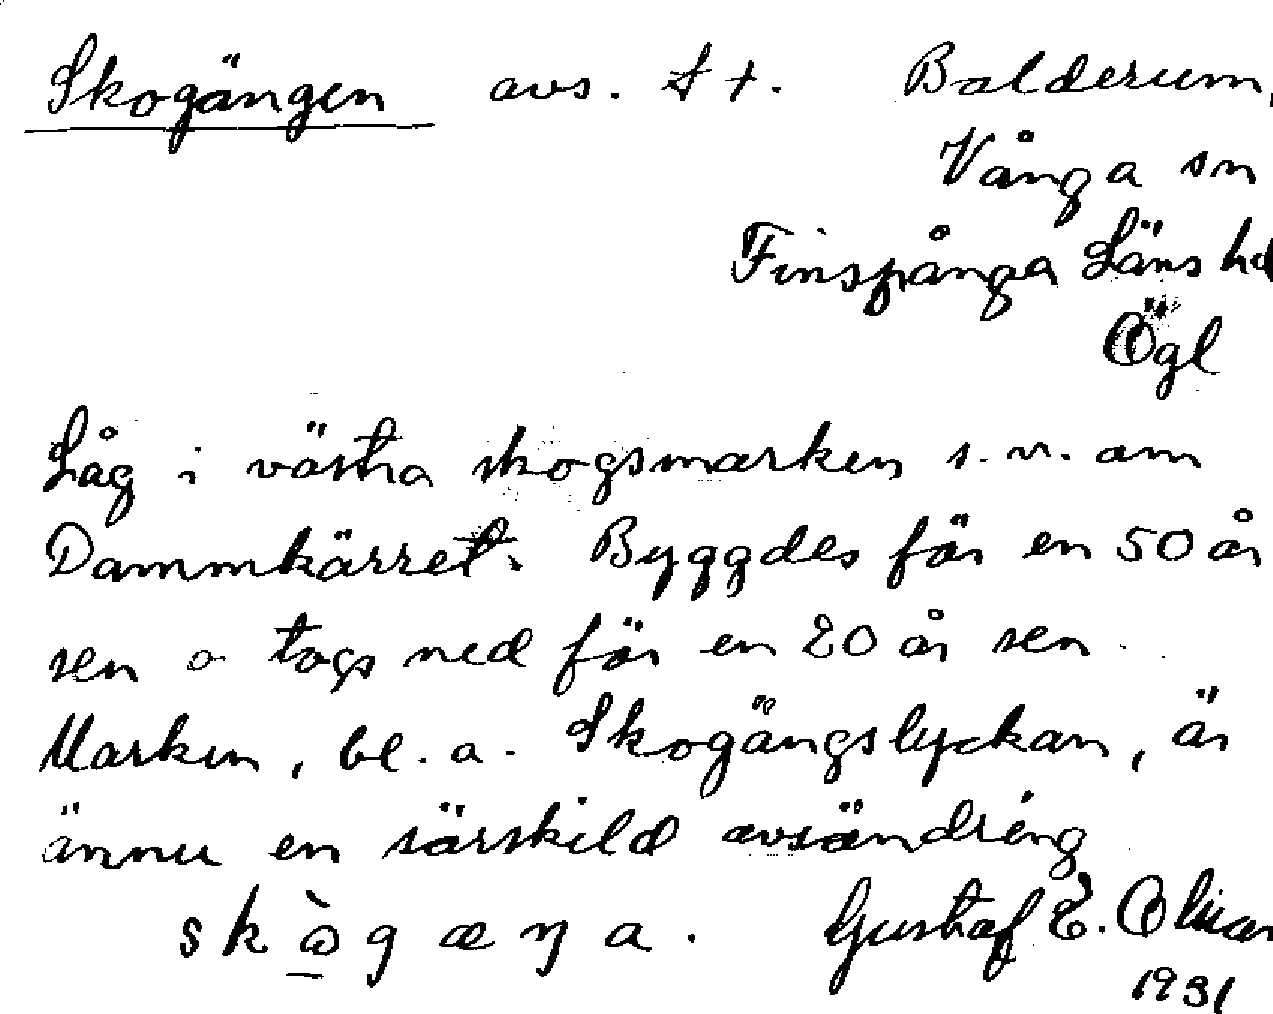 Skogängen avs. t t. Balderum,
Vånga sn
Finspånga Läns hd
Ögl
Låg i västra skogsmarken s.v. om
Dammkärret. Byggdes för en 50 år
sen o togs ned för en 20 år sen.
Marken, bl. a. Skogängslyckan, är
ännu en särskild avsöndring
skògæŋa. Gustaf E.
1931